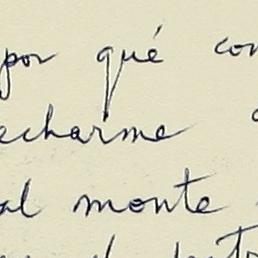 por qué con
echarme
al monte